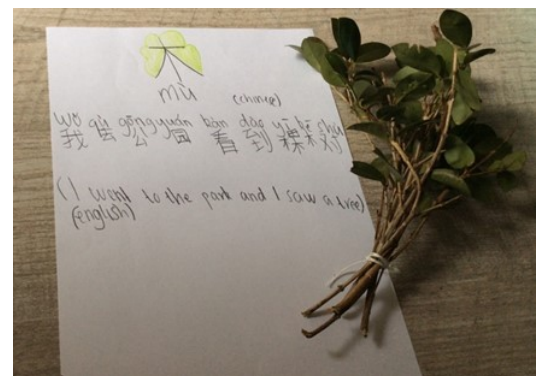 木
mù
(chinese)
wǒ qù gōngyuán kàn dào yī kē shù
我去公园看到一棵树
(I went to the park and I saw a tree)
(english)